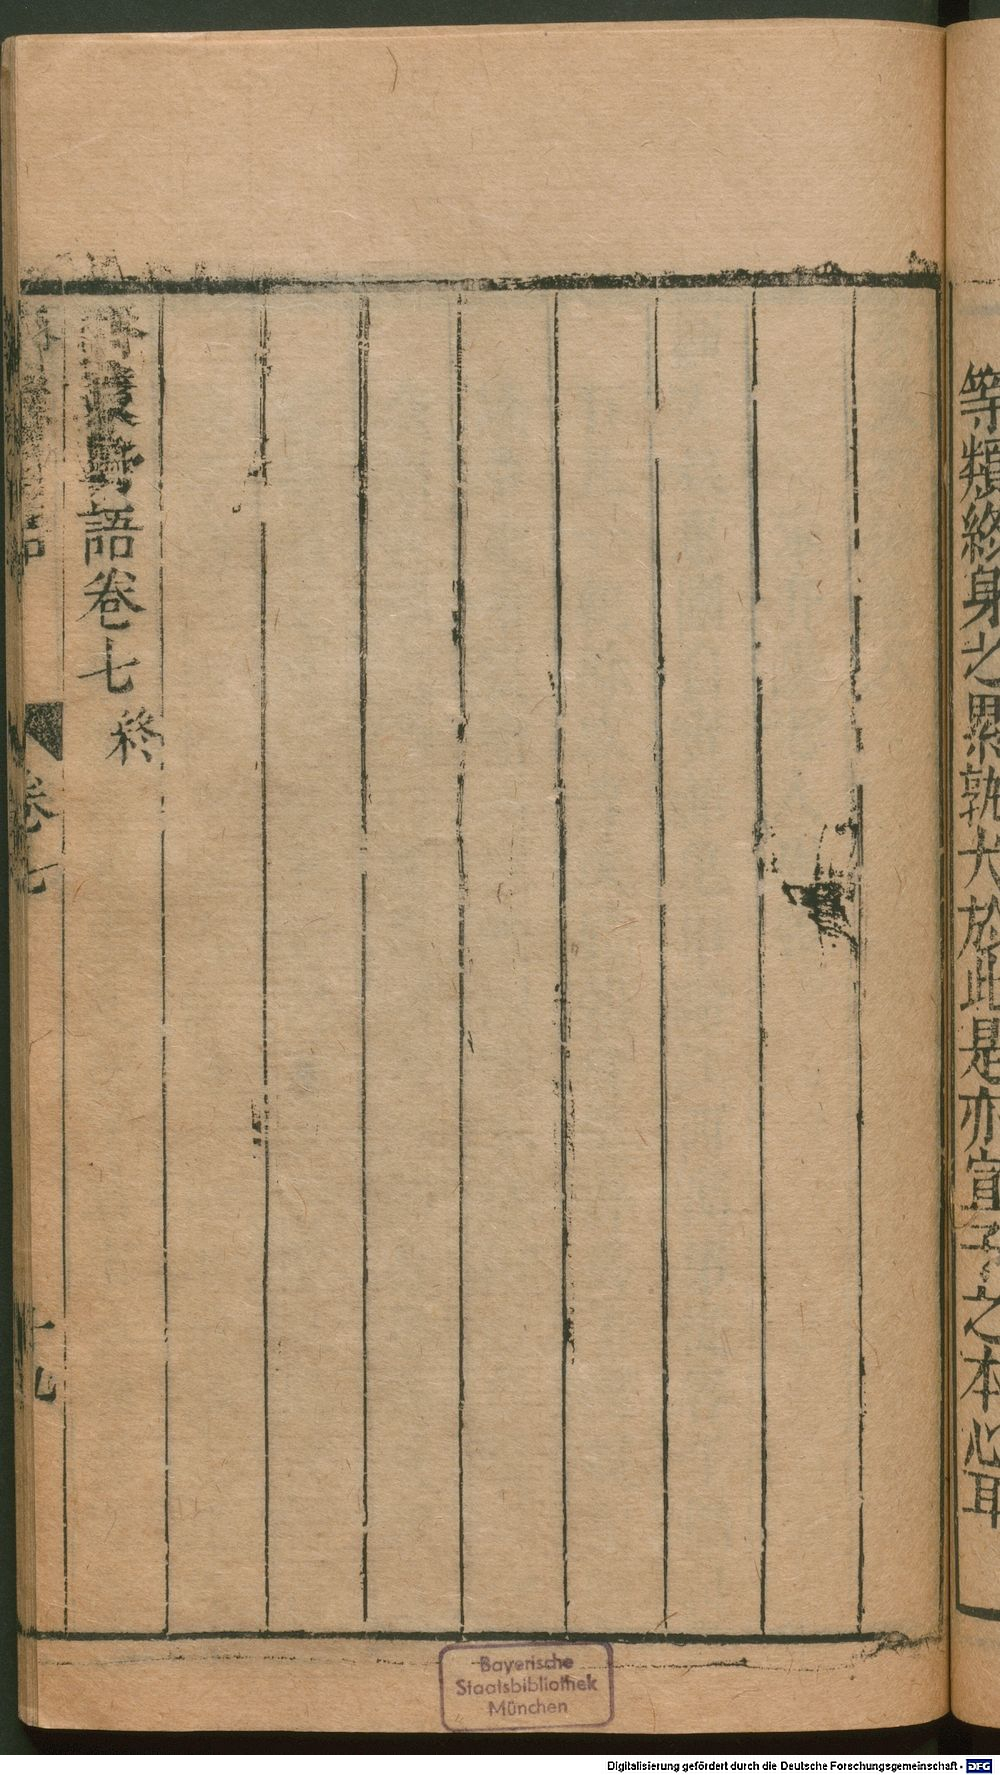 等類終身之累孰大於此是亦宣子之本心耳
齊東野語卷七終
卷七
十九
Bayerische
Staatsbibliothek
München
Digitalisierung gefördert durch die Deutsche Forschungsgemeinschaft - DFG